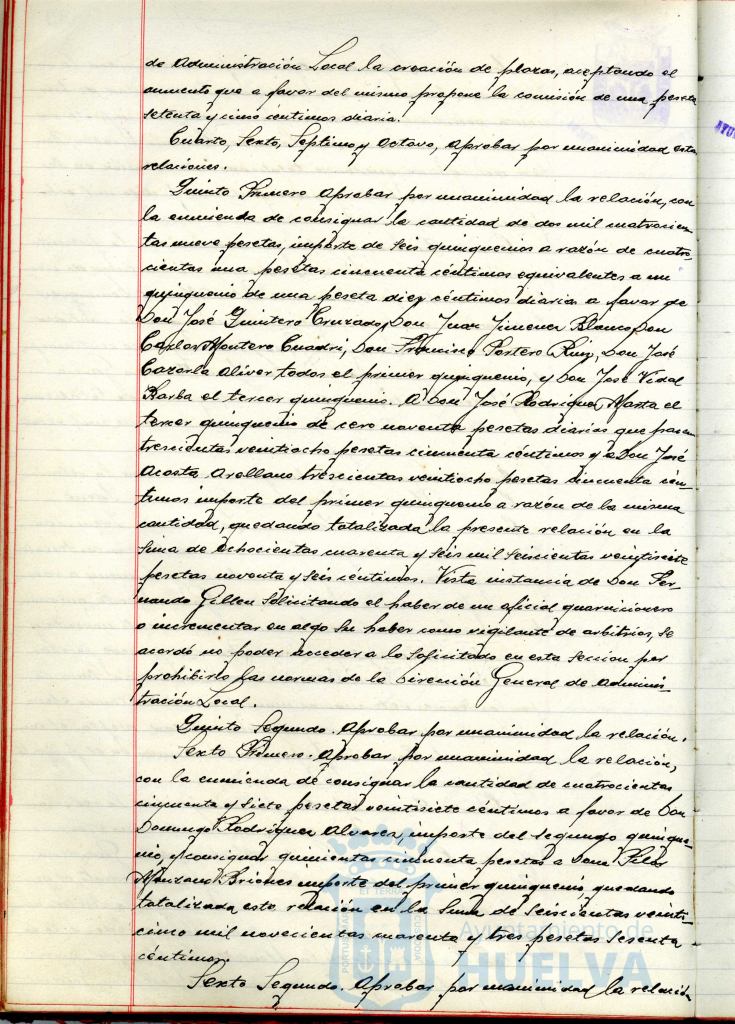 de Administración Local la creación de plazas, aceptando el
aumento que a favor del mismo propone la comisión de una peseta
setenta y cinco céntimos diaria.
Cuarto, Sexto, Septimo y Octavo, Aprobar por unanimidad estas
relaciones.
Quinto Primero Aprobar por unanimidad la relación, con
la enmienda de consignar la cantidad de dos mil cuatrocien-
tas nueve pesetas, importe de seis quinquenios a razón de cuatro-
cientas una pesetas cincuenta céntimos equivalentes a un
quinquenio de una peseta diez céntimos diaria a favor de
Don José Quintero Cruzado, Don Juan Jimenez Blanco, Don
Carlos Montero Cuadri, Don Francisco Portero Ruiz, Don José
Cazorla Oliver todos el primer quinquenio, y Don José Vidal
Barba el tercer quinquenio. A Don José Rodriguez Marta el
tercer quinquenio de cero noventa pesetas diarias que pasan
trescientas veintiocho pesetas cincuenta céntimos y a Don José
Acosta Arellano trescientas veintiocho pesetas cincuenta cén-
timos importe del primer quinquenio a razón de la misma
cantidad, quedando totalizada la presente relación en la
suma de ochocientas cuarenta y seis mil seiscientas veintisiete
pesetas noventa y seis céntimos. Vista instancia de Don Fer-
nando Gillen solicitando el haber de un oficial guarnicionero
o incrementar en algo su haber como vigilante de arbitrios, se
acordó no poder acceder a lo solicitado en esta sección por
prohibirlo las normas de la Dirección General de Adminis-
tración Local.
Quinto Segundo. Aprobar por unanimidad la relación.
Sexto Primero. Aprobar por unanimidad la relación,
con la enmienda de consignar la cantidad de cuatrocientas
cincuenta y siete pesetas veintisiete céntimos a favor de Don
Domingo Rodriguez Alvarez, importe del segundo quinque-
nio, y consignar quinientas cincuenta pesetas a Dona Pilar
Briones importe del primer quinquenio quedando
totalizada esta relación en la suma de seiscientas veinti-
cinco mil novecientas cuarenta y tres pesetas sesenta
céntimos.
Sexto Segundo. Aprobar por unanimidad la relación
Ayuntamiento de
HUELVA